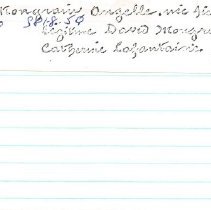 Mongrain Angelle. née
S8.f8.50
Légitime David Mongra
Catherine Lafontaine.